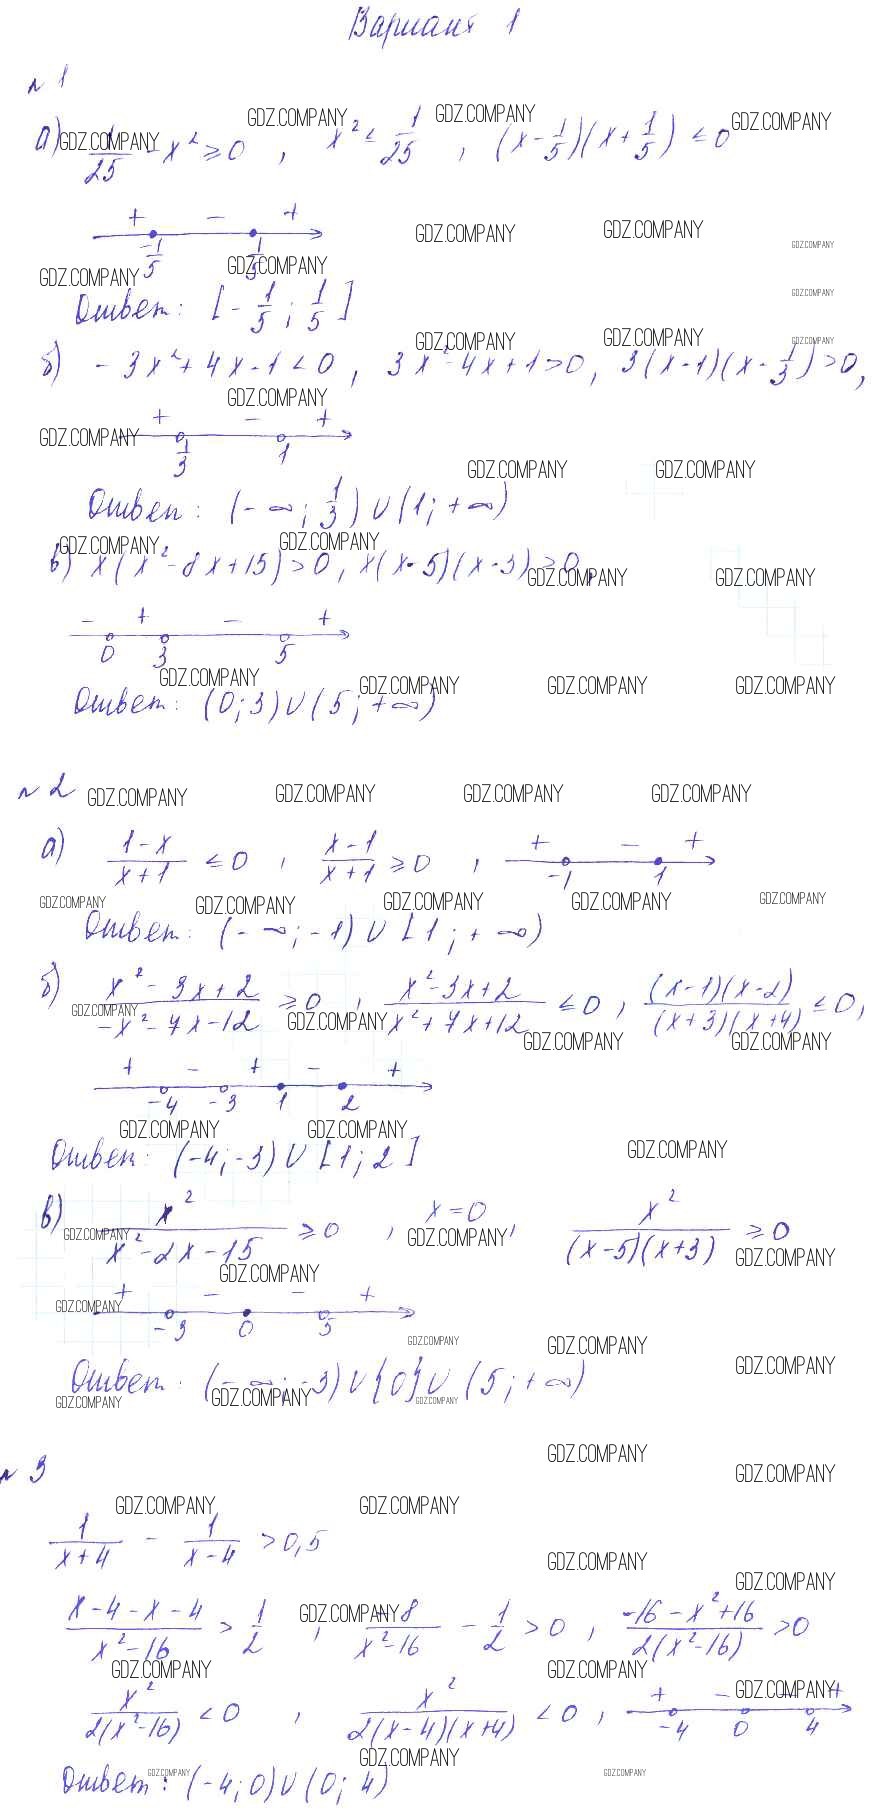 Вариант 1
№ 1
а) 1/25 - x² ≥ 0 , x² ≤ 1/25 , (x - 1/5)(x + 1/5) ≤ 0
+ - +
-1/5 1/5
Ответ: [-1/5 ; 1/5]
б) -3x² + 4x - 1 < 0 , 3x² - 4x + 1 > 0 , 3(x - 1)(x - 1/3) > 0 ,
+ - +
1/3 1
Ответ: (-∞ ; 1/3) ∪ (1 ; +∞)
в) x(x² - 8x + 15) > 0 , x(x - 5)(x - 3) > 0 ,
- + - +
0 3 5
Ответ: (0 ; 3) ∪ (5 ; +∞)
№ 2
а) (1 - x)/(x + 1) ≤ 0 , (x - 1)/(x + 1) ≥ 0 , + - +
-1 1
Ответ: (-∞ ; -1) ∪ [1 ; +∞)
б) (x² - 3x + 2)/(-x² - 7x - 12) ≥ 0 , (x² - 3x + 2)/(x² + 7x + 12) ≤ 0 , (x - 1)(x - 2)/(x + 3)(x + 4) ≤ 0 ,
+ - + - +
-4 -3 1 2
Ответ: (-4 ; -3) ∪ [1 ; 2]
в) x²/(x² - 2x - 15) ≥ 0 , x = 0 , x²/(x - 5)(x + 3) ≥ 0
+ - - +
-3 0 5
Ответ: (-∞ ; -3) ∪ {0} ∪ (5 ; +∞)
№ 3
1/(x + 4) - 1/(x - 4) > 0,5
(x - 4 - x - 4)/(x² - 16) > 1/2 , -8/(x² - 16) - 1/2 > 0 , (-16 - x² + 16)/2(x² - 16) > 0
x²/2(x² - 16) < 0 , x²/2(x - 4)(x + 4) < 0 , + - - +
-4 0 4
Ответ: (-4 ; 0) ∪ (0 ; 4)
GDZ.COMPANY